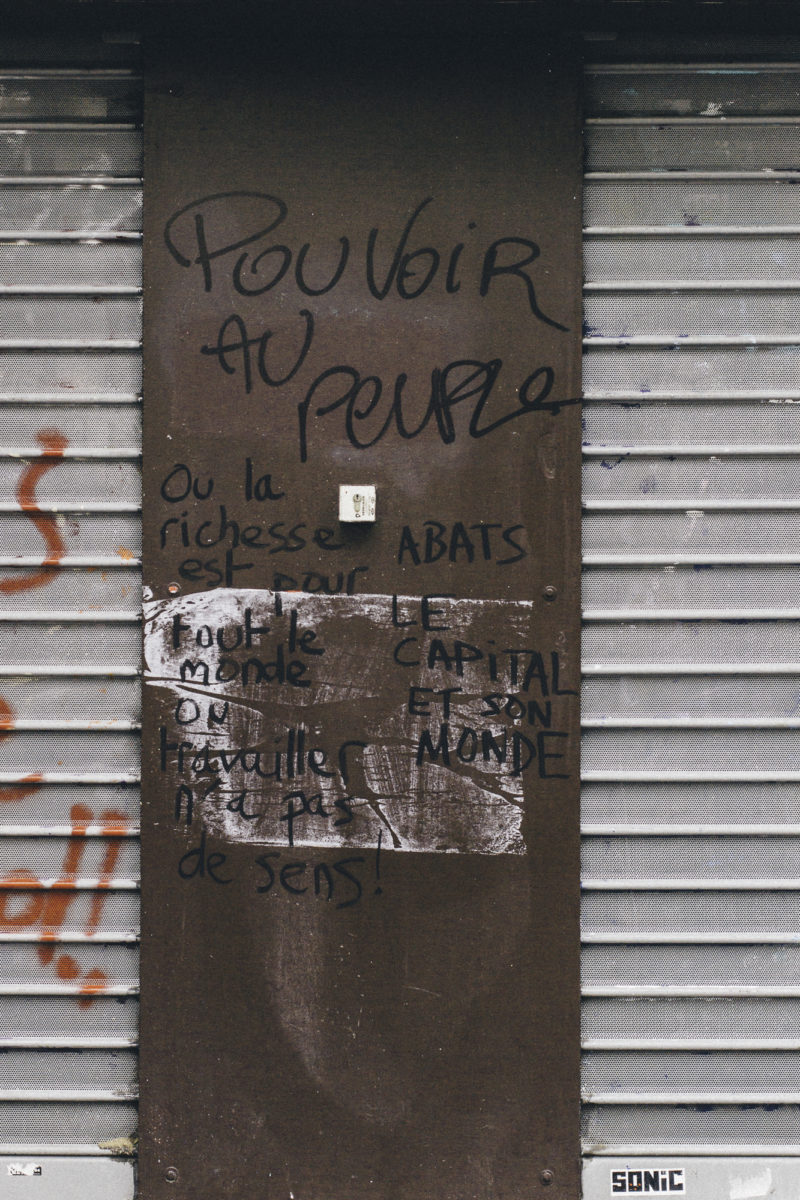 POUVOIR
AU
PEUPLE
Ou la
richesse
est pour
tout le
monde
ou
travailler
n'a pas
de sens!
ABATS
LE
CAPITAL
ET SON
MONDE
S
!!
SONIC